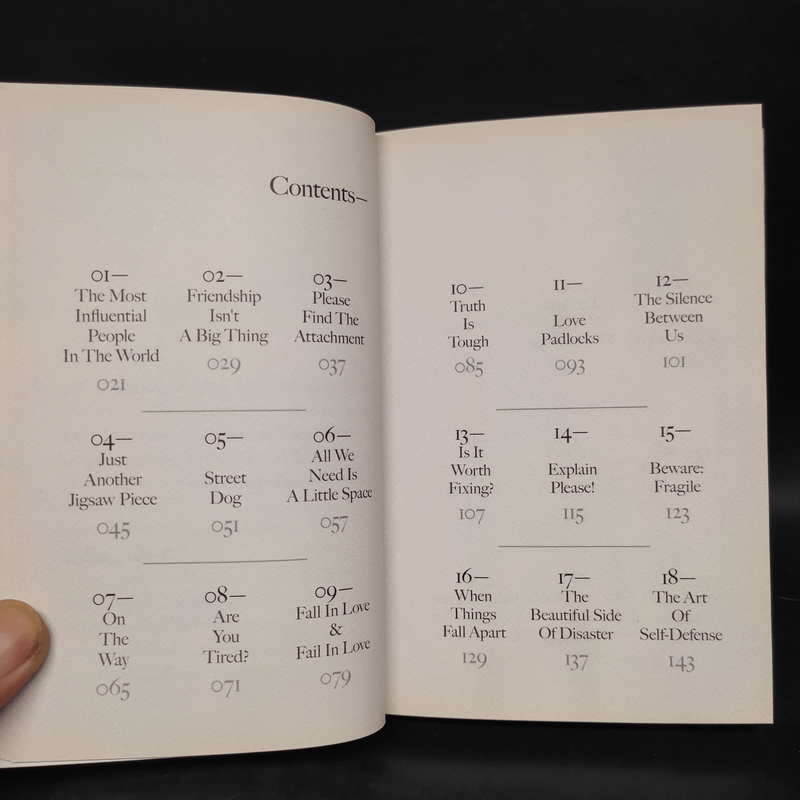 Contents—
01—
The Most
Influential
People
In The World
021
02—
Friendship
Isn't
A Big Thing
029
03—
Please
Find The
Attachment
037
04—
Just
Another
Jigsaw Piece
045
05—
Street
Dog
051
06—
All We
Need Is
A Little Space
057
07—
On
The
Way
065
08—
Are
You
Tired?
071
09—
Fall In Love
&
Fail In Love
079
10—
Truth
Is
Tough
085
11—
Love
Padlocks
093
12—
The Silence
Between
Us
101
13—
Is It
Worth
Fixing?
107
14—
Explain
Please!
115
15—
Beware:
Fragile
123
16—
When
Things
Fall Apart
129
17—
The
Beautiful Side
Of Disaster
137
18—
The Art
Of
Self-Defense
143